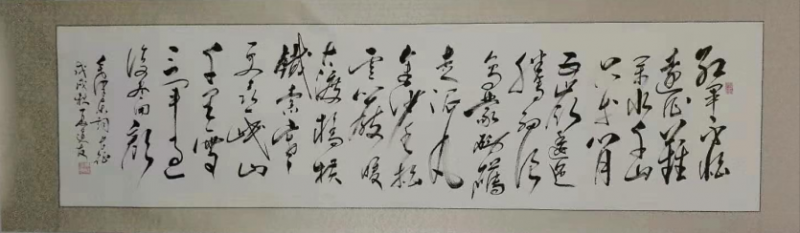 红军不怕
远征難
万水千山
只等闲
五岭逶迤
腾细浪
乌蒙磅礴
走泥丸
金沙水拍
云崖暖
大渡橋横
鐵索寒
更喜岷山
千里雪
三军过
後尽开颜
毛泽东词长征
戊戌秋